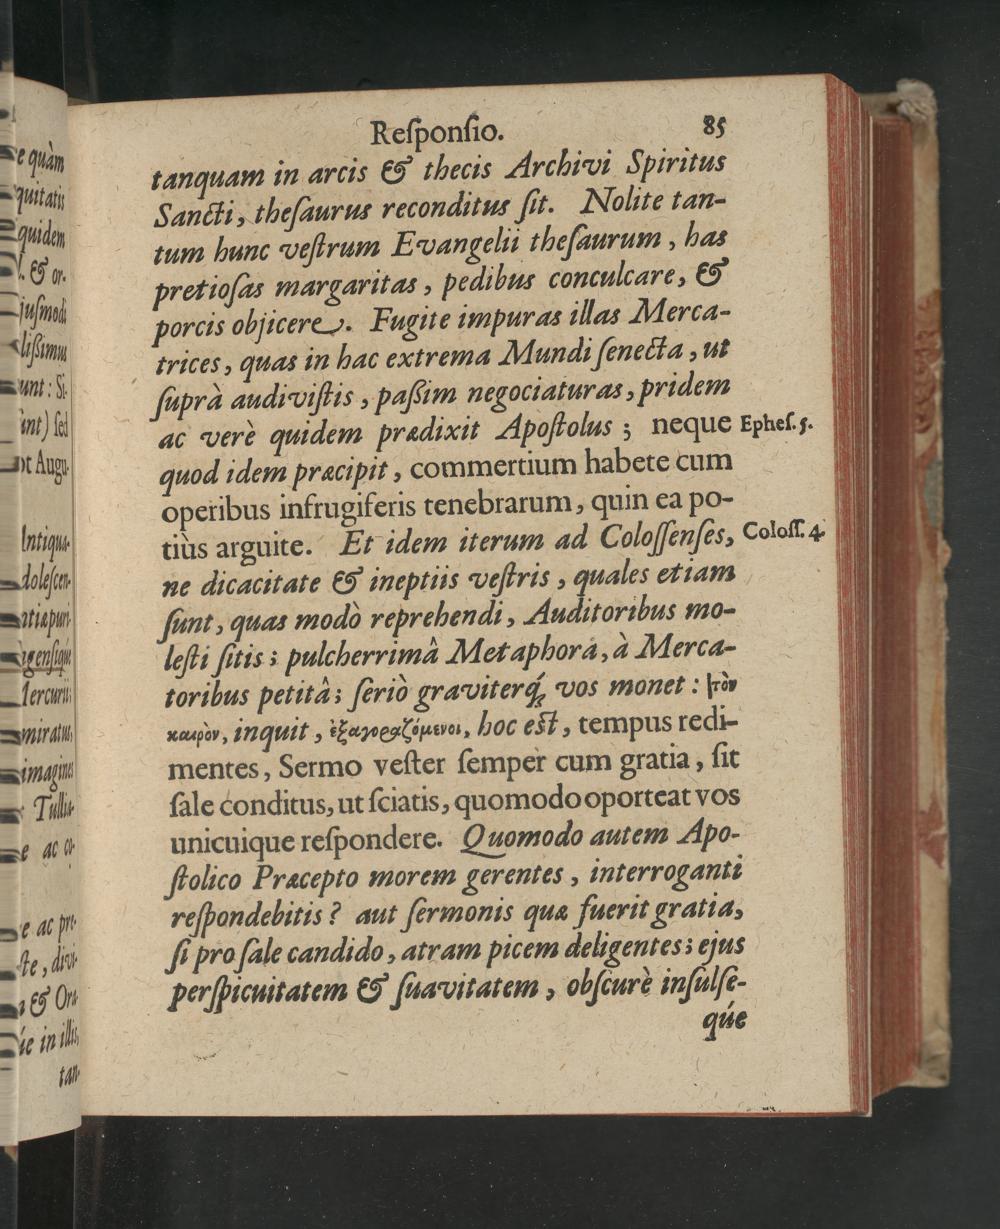 e quàm
quitatis
quidem
l. & or-
jusmodi
lißimus
unt: Si-
int) sed
ot Augu-
Antiqua-
dolescen-
Mercurii;
miratur,
imagines
Tullia-
e ac co-
e ac pre-
ste, divi-
a & Ora-
ie in illis,
tan-
Reſponſio. 85
tanquam in arcis & thecis Archivi Spiritus
Sancti, theſaurus reconditus ſit. Nolite tan-
tum hunc veſtrum Evangelii theſaurum, has
pretioſas margaritas, pedibus conculcare, &
porcis objicere. Fugite impuras illas Merca-
trices, quas in hac extrema Mundi ſenecta, ut
ſuprà audiviſtis, paßim negociaturas, pridem
ac verè quidem prædixit Apoſtolus; neque Epheſ. 5.
quod idem præcipit, commertium habete cum
operibus infrugiferis tenebrarum, quin ea po-
tiùs arguite. Et idem iterum ad Coloſſenſes, Coloſſ. 4.
ne dicacitate & ineptiis veſtris, quales etiam
ſunt, quas modò reprehendi, Auditoribus mo-
leſti ſitis; pulcherrimâ Metaphora, à Merca-
toribus petitâ; ſeriò graviterq́; vos monet: τὸν
καιρὸν, inquit, ἐξαγοραζόμενοι, hoc eſt, tempus redi-
mentes, Sermo veſter ſemper cum gratia, ſit
ſale conditus, ut ſciatis, quomodo oporteat vos
unicuique reſpondere. Quomodo autem Apo-
ſtolico Præcepto morem gerentes, interroganti
reſpondebitis? aut ſermonis quæ fuerit gratia,
ſi pro ſale candido, atram picem deligentes; ejus
perſpicuitatem & ſuavitatem, obſcurè inſulſe-
qúe